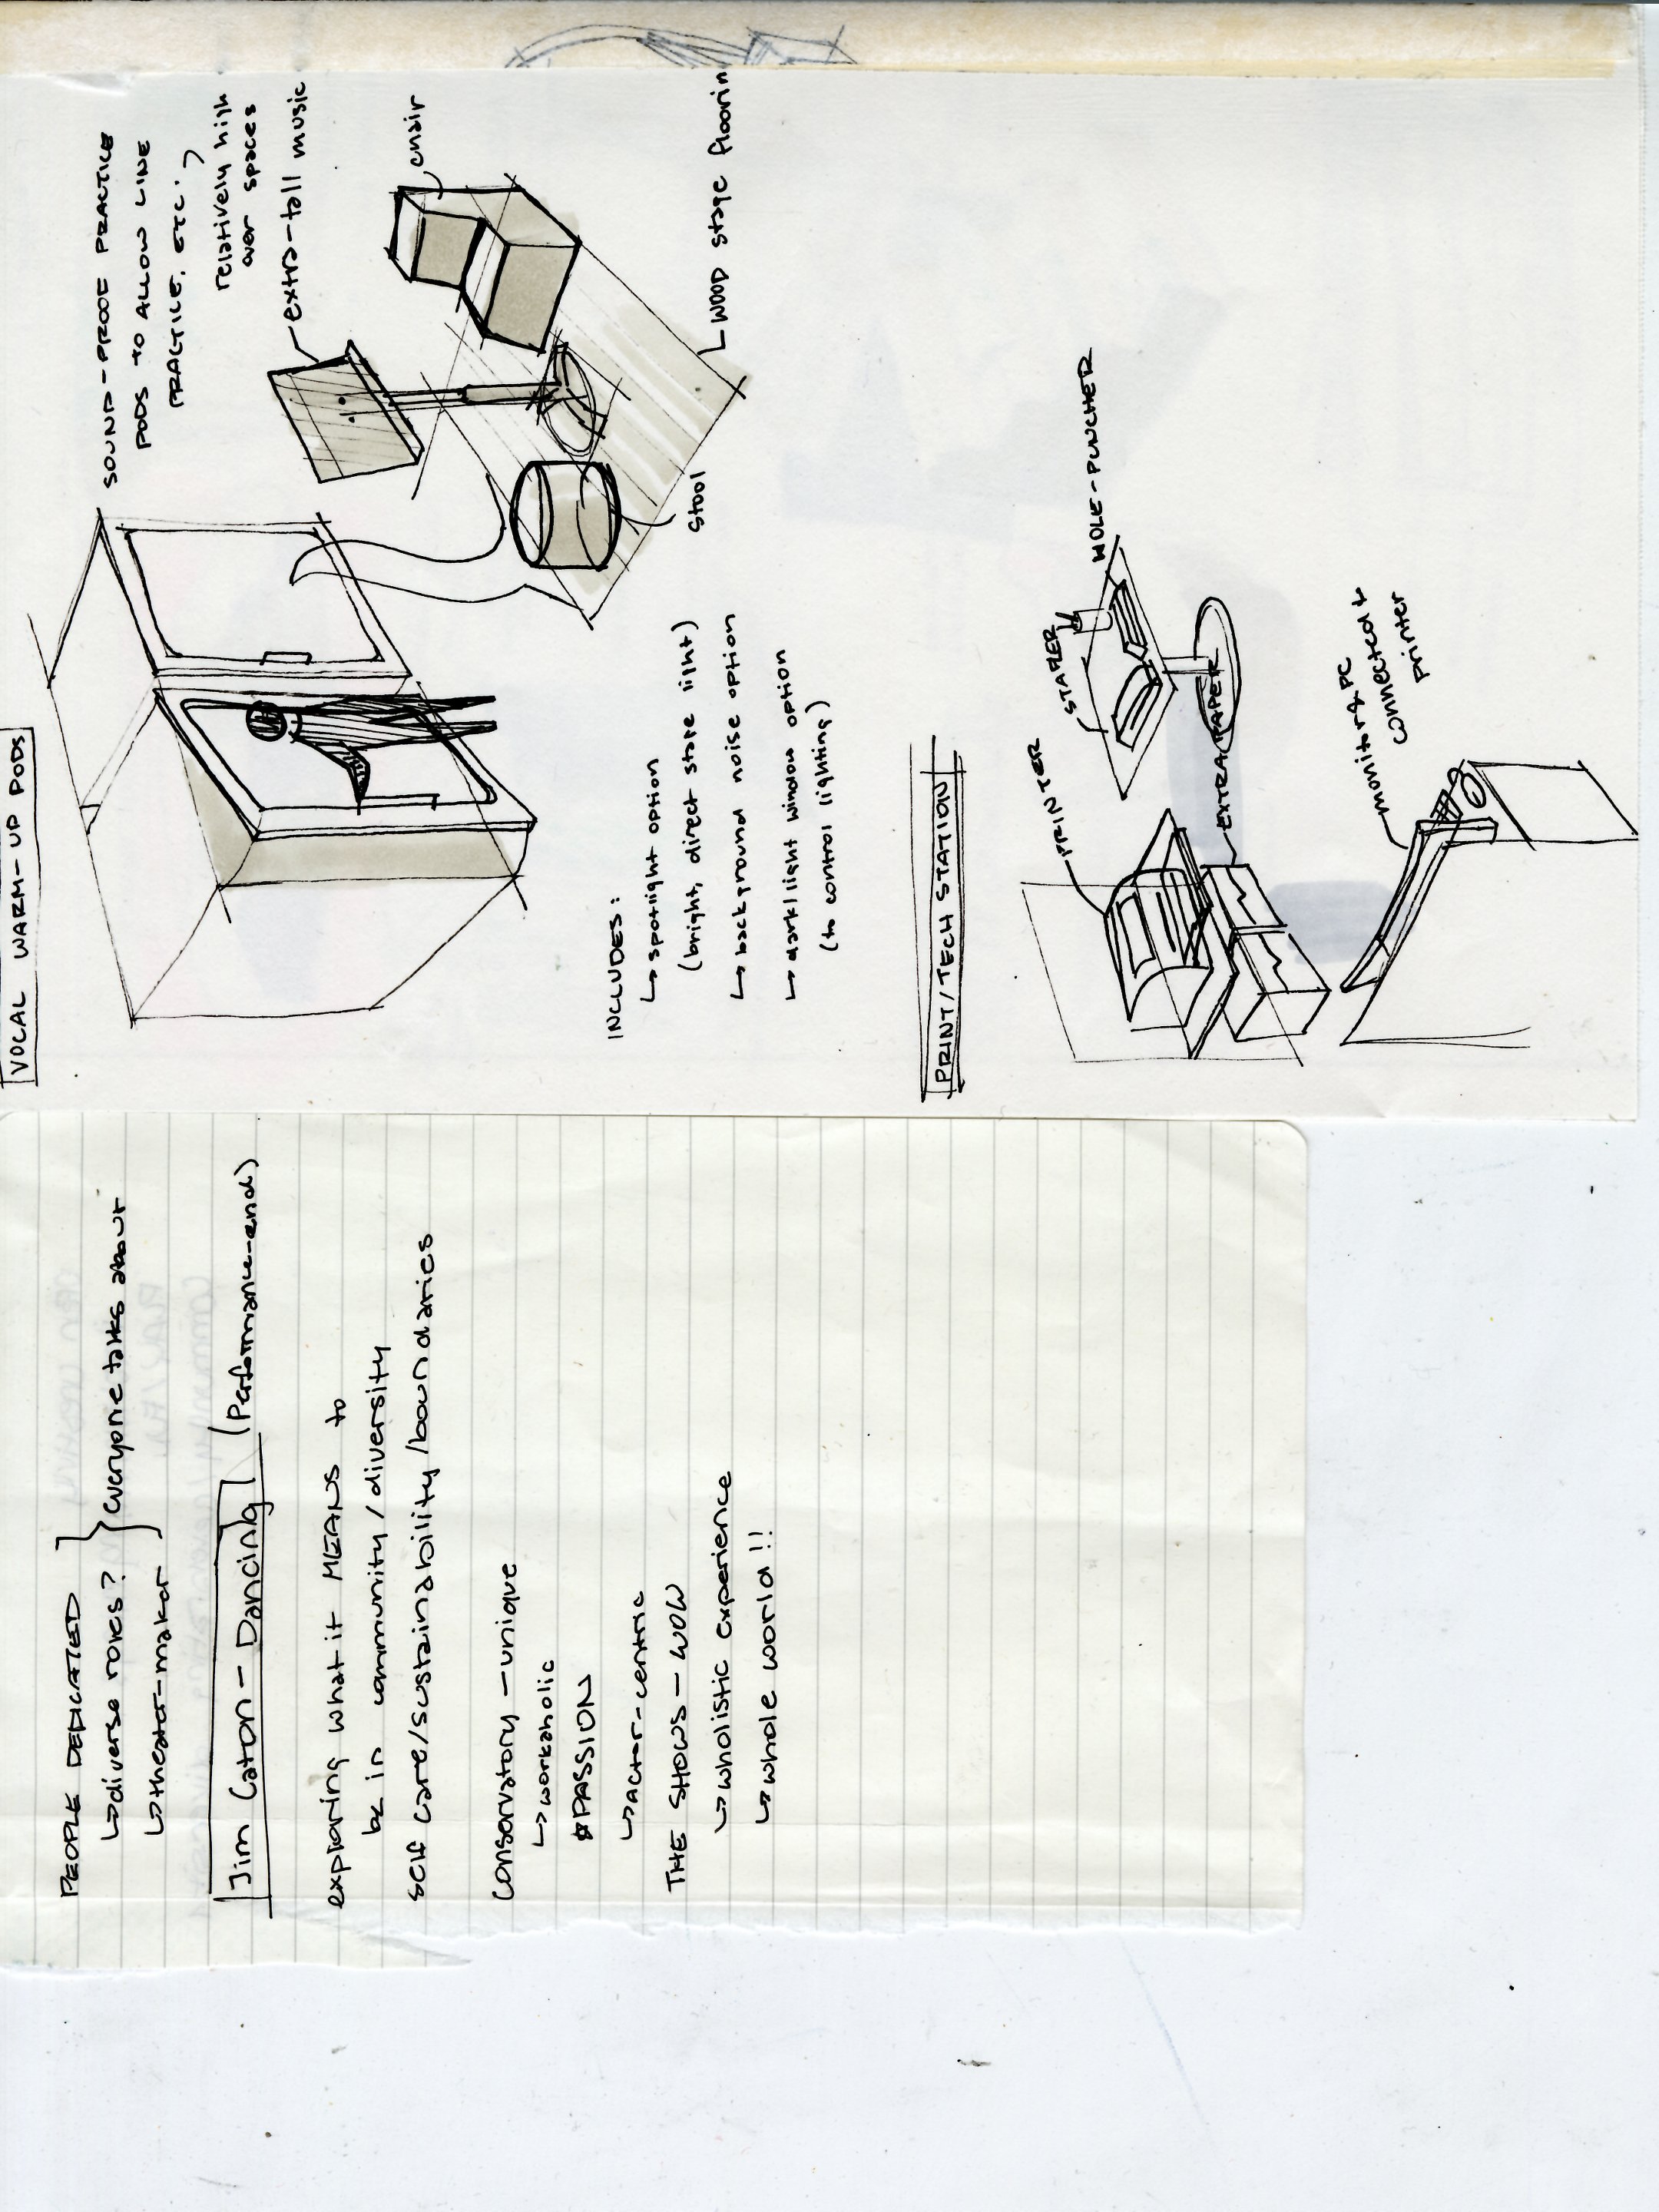 PEOPLE DEDICATED
↳diverse roles?
↳theater-maker
everyone talks about
Jim Caton - Dancing (Performance-end)
exploring what it MEANS to
be in community/diversity
self care/sustainability/boundaries
Conservatory - unique
↳workaholic
*PASSION
↳actor-centric
THE SHOWS - WOW
↳wholistic experience
↳whole world!!
VOCAL WARM-UP PODS
SOUND-PROOF PRACTICE
PODS TO ALLOW LINE
PRACTICE, ETC.
relatively high
over spaces
extra-tall music
chair
stool
WOOD stage floorin
INCLUDES:
↳spotlight option
(bright, direct stage light)
↳background noise option
↳dark/light window option
(to control lighting)
PRINT/TECH STATION
PRINTER
STAPLER
HOLE-PUNCHER
EXTRA PAPER
monitor & PC
connected to
printer